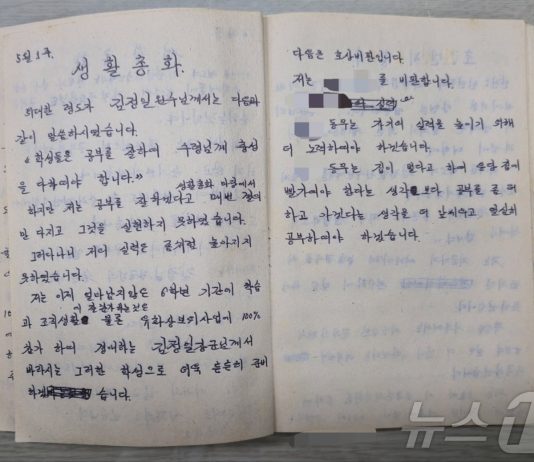 5월 1주.
생활총화
위대한 령도자 김정일원수님께서는 다음과
같이 말씀하시였습니다.
《학생들은 공부를 잘하여 수령님께 충성
을 다하여야 합니다.》
생활총화 마당에서
하지만 저는 공부를 잘하겠다고 매번 결의
만 다지고 그것을 실현하지 못하였습니다.
그러다나니 저의 실력은 높아지지
못하였습니다.
저는 이제 얼마남지않은 6학년 기간에 학습
과 조직생활 물론 사업에 100%
참가 하여 경애하는 김정일장군님께서
바라시는 그러한 학생으로 더욱 튼튼히 준비
하겠습니다.
다음은 호상비판입니다.
저는 를 비판합니다.
동무는 자기의 실력을 높이기 위해
더 노력하여야 하겠습니다.
동무는 집이 멀다고 하여 집에
빨가야 한다는 생각보다 공부를 곧 더
하고 가겠다는 생각을 더 앞세우고 열심히
공부하여야 하겠습니다.
뉴스1